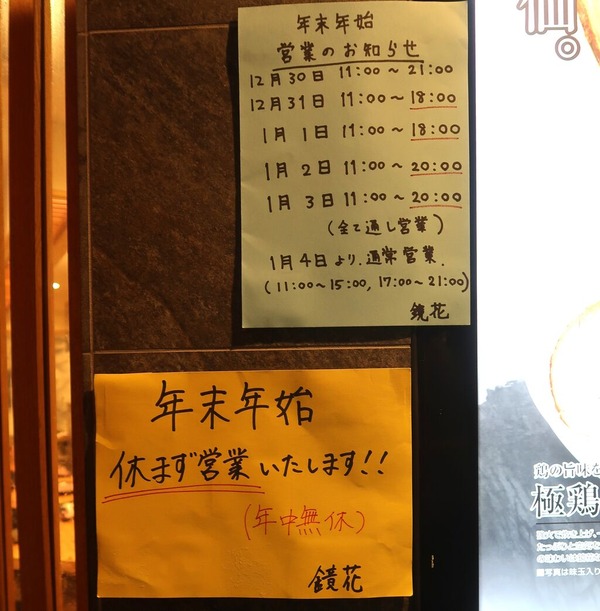 年末年始
営業のお知らせ
12月30日 11:00～21:00
12月31日 11:00～18:00
1月 1日 11:00～18:00
1月 2日 11:00～20:00
1月 3日 11:00～20:00
(全て通し営業)
1月4日より、通常営業.
(11:00～15:00, 17:00～21:00)
鏡花
年末年始
休まず営業いたします!!
(年中無休)
鏡花
価。
鶏の旨味を
極鶏